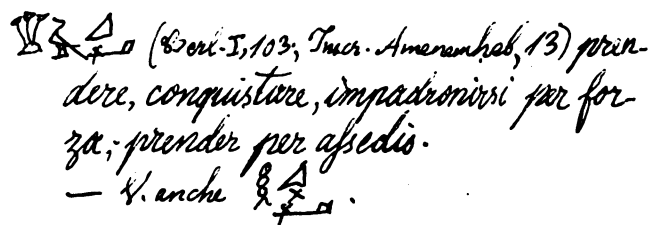 (Berl. I, 103; Inscr. Amenemheb, 13) pren-
dere, conquistare, impadronirsi per for-
za; prender per aſsedio.
— V. anche .